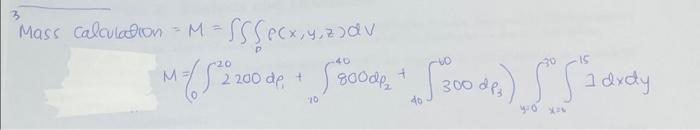 3
Mass Calculation = M = ∫∫∫_D ρ(x,y,z)dv
M = (∫_0^20 2200 dρ₁ + ∫_20^40 800dρ₂ + ∫_40^60 300 dρ₃) ∫_{y=0}^30 ∫_{x=0}^15 1 dxdy